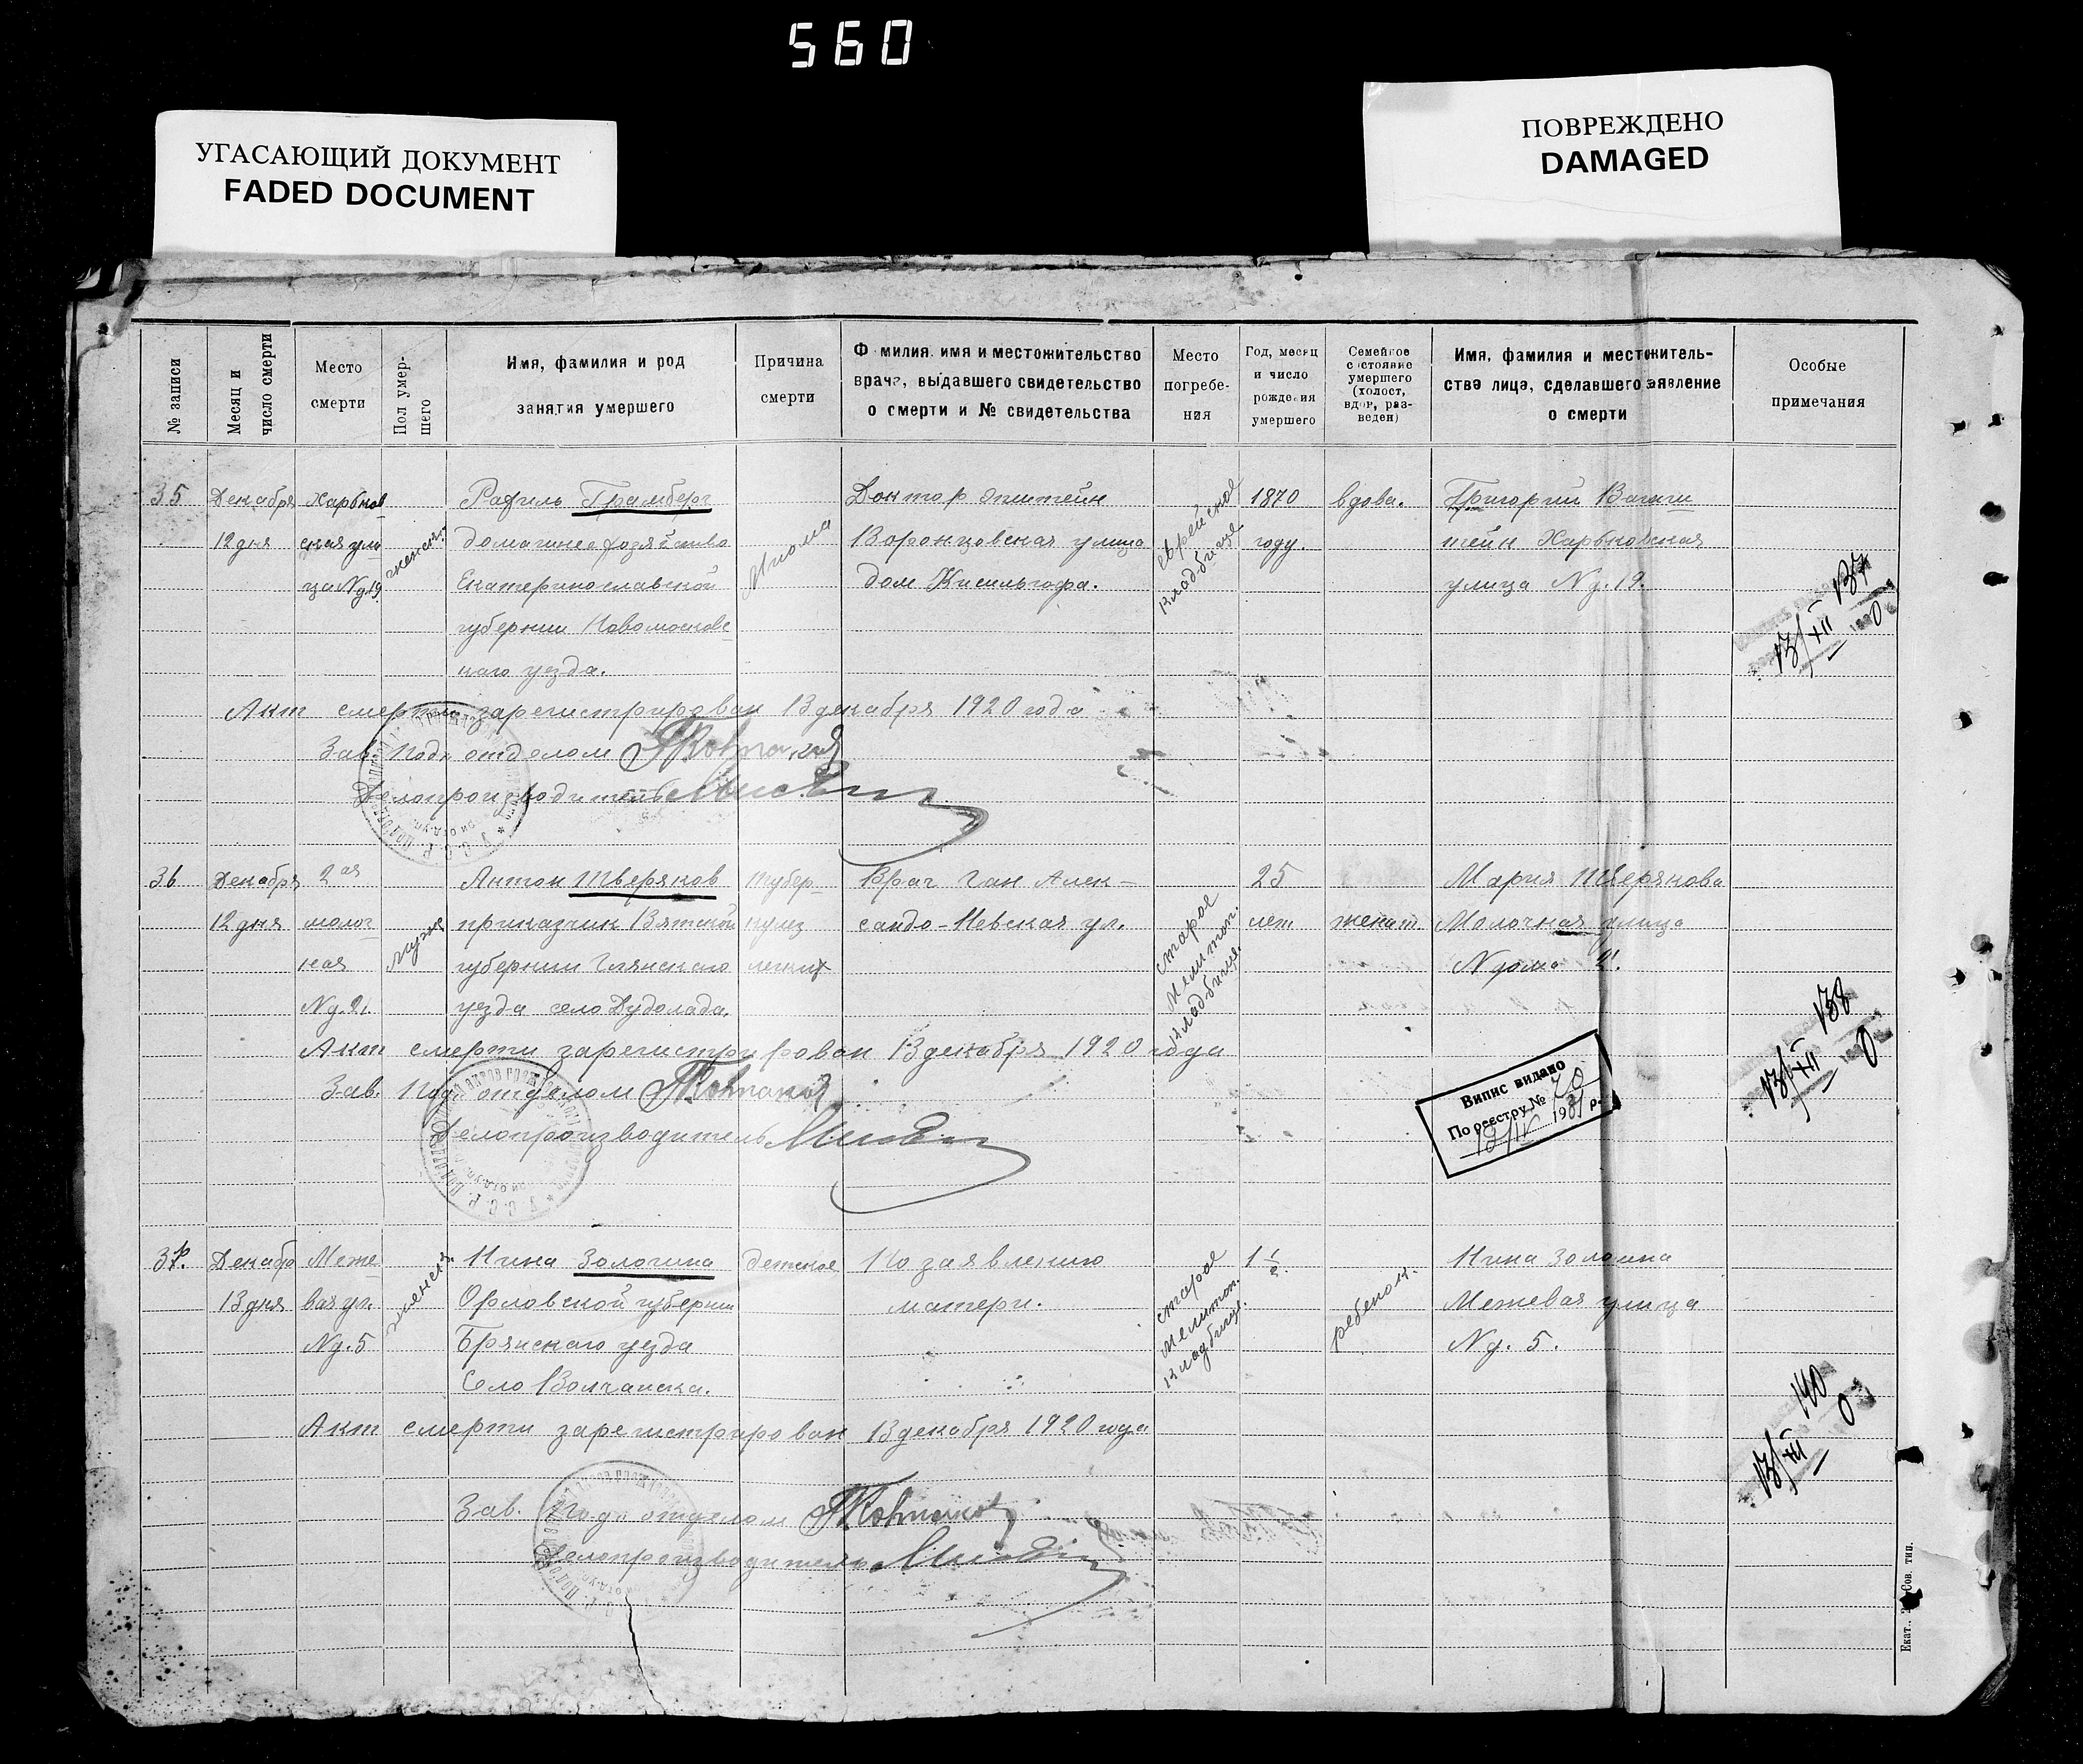 560
УГАСАЮЩИЙ ДОКУМЕНТ
FADED DOCUMENT
ПОВРЕЖДЕНО
DAMAGED
№ записи
Месяц и
число смерти
Место
смерти
Пол умер-
шего
Имя, фамилия и род
занятия умершего
Причина
смерти
Ф милия, имя и местожительство
врача, выдавшего свидетельство
о смерти и № свидетельства
Место
погребе-
ния
Год, месяц
и число
рождения
умершего
Семейное
состояние
умершего
(холост,
вдов, раз-
веден)
Имя, фамилия и местожитель-
ство лица, сделавшего заявление
о смерти
Особые
примечания
35
Декабря
12 дня
Харьков
ская ули
ца № д. 19
женск.
Рахиль Грамберг
домашнее хозяйство
Екатеринославской
губернии Новомосковс
каго уезда.
Доктор Эпштейн
Воронцовская улица
дом Кисильгофа.
еврейское
кладбище
1870
году.
вдова.
Григорий Вагши
тейн Харьковская
улица № д. 19.
137
13/XII 0
Акт смерти зарегистрирован 13 декабря 1920 года
Зав. Подъ отделом
Делопроизводитель
36
Декабря
12 дня
2ая
молоч
ная
№ д. 21.
муж
Антон Тверяков
приказчик Вятской
губернии Глянскаго
уезда село Дудолада.
тубер
кулез
легких
Врач Ган Алек-
сандо-Невская ул.
старое
мелитоп.
кладбище.
25
лет
женат.
Мария Тверякова
Молочная улица
№ дома 21.
138
13/XII 0
Акт смерти зарегистрирован 13 декабря 1920 года
Зав. Подъ отделом
Делопроизводитель
Випис видано
По реестру № 70
12/IV 1931 р.
37.
Декабр
13 дня
Меже
вая ул.
№ д. 5
женск.
Нина Золотина
Орловской губернии
Брянскаго уезда
Село Волчанска.
детское
По заявлению
матери.
старое
мелитоп.
кладбище.
1 1/2.
ребенок.
Нина Золотина
Межевая улица
№ д. 5.
140
13/XII 0
Акт смерти зарегистрирован 13 декабря 1920 года
Зав. Подъ отделом
Делопроизводитель
Сов. тип.